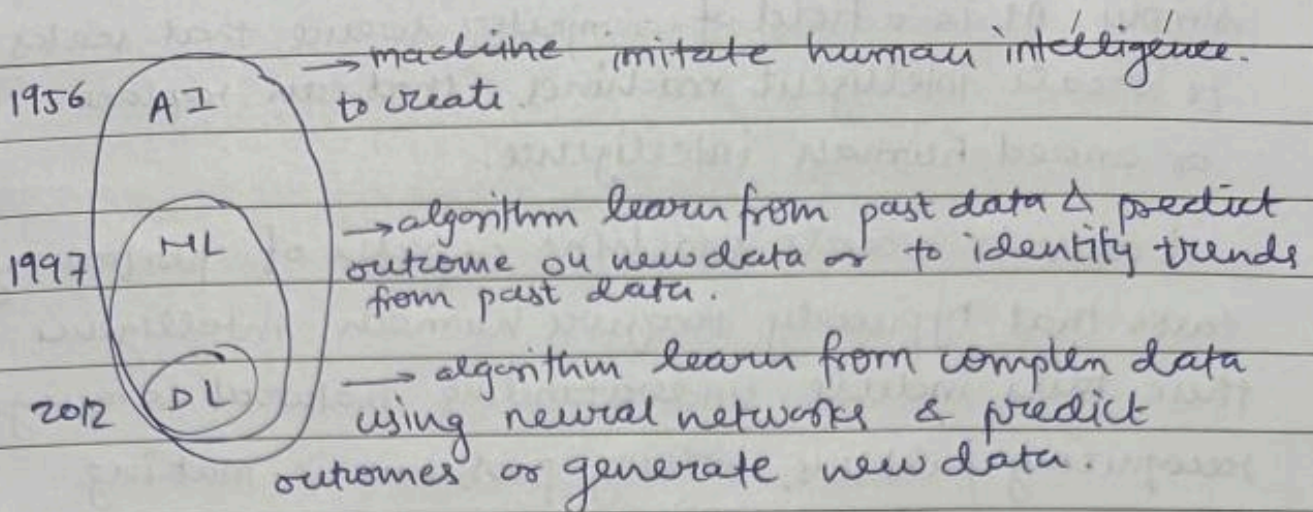 → machine imitate human intelligence.
1956 AI to create
→ algorithm learn from past data & predict
ML
1997 outcome on new data or to identity trends
from past data.
→ algorithm learn from complen data
2012 DL using neural networks & predict
outcomes or generate new data.